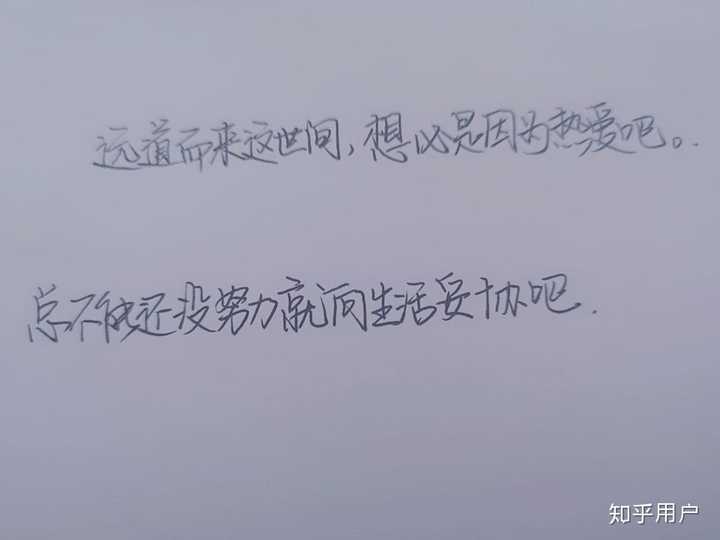 远道而来这世间,想必是因为热爱吧。
总不能还没努力就向生活妥协吧.
知乎用户